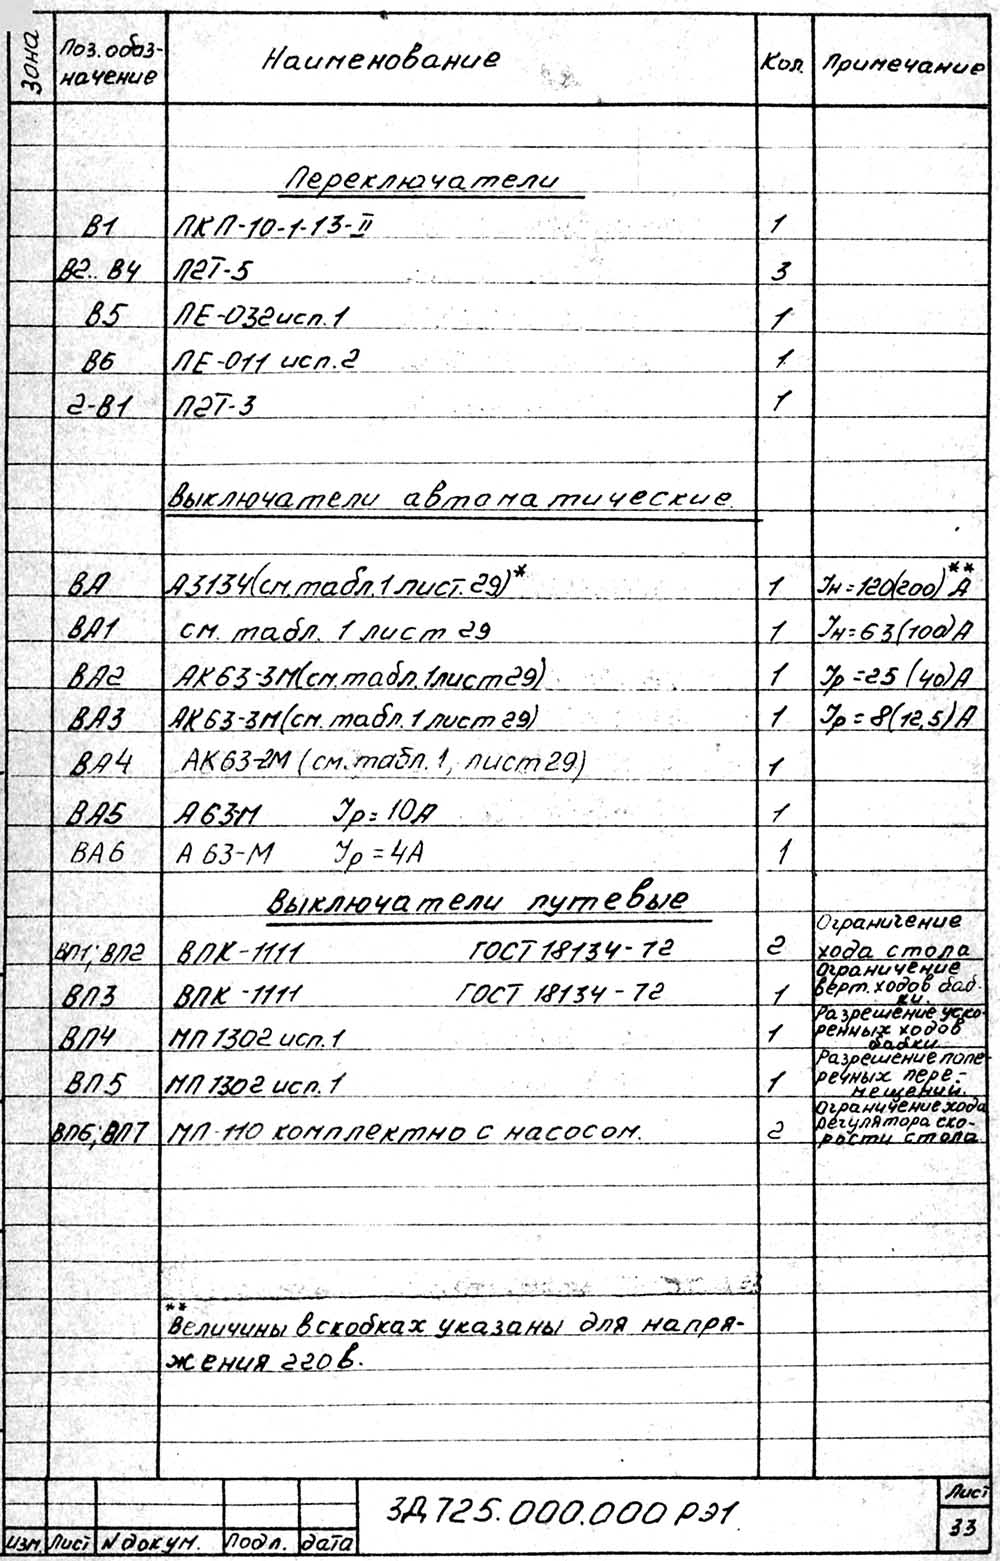 Зона Поз. обоз- Наименование Кол. Примечание
начение
Переключатели
В1 ПКП-10-1-13-II 1
В2..В4 П2Т-5 3
В5 ПЕ-032 исп.1 1
В6 ПЕ-011 исп.2 1
2-В1 П2Т-3 1
Выключатели автоматические.
ВА А3134(см.табл.1 лист.29)* 1 Iн=120(200)А**
ВА1 см. табл. 1 лист 29 1 Iн=63(100)А
ВА2 АК63-3М(см.табл.1лист29) 1 Iр=25(40)А
ВА3 АК63-3М(см.табл.1 лист 29) 1 Iр=8(12,5)А
ВА4 АК63-2М (см.табл.1, лист29) 1
ВА5 А63М Iр=10А 1
ВА6 А 63-М Iр=4А 1
Выключатели путевые
ВП1; ВП2 ВПК-1111 ГОСТ 18134-72 2 Ограничение
хода стола
ВП3 ВПК-1111 ГОСТ 18134-72 1 Ограничение
верт. ходов баб-
ки.
ВП4 МП1302 исп.1 1 Разрешение уско-
ренных ходов
бабки.
ВП5 МП1302 исп.1 1 Разрешение попе-
речных пере-
мещений.
ВП6; ВП7 МП-110 комплектно с насосом. 2 Ограничение хода
регулятора ско-
рости стола
** Величины в скобках указаны для напря-
жения 220в.
3Д725.000.000 РЭ1 Лист
33
Изм. Лист N докум. Подп. дата